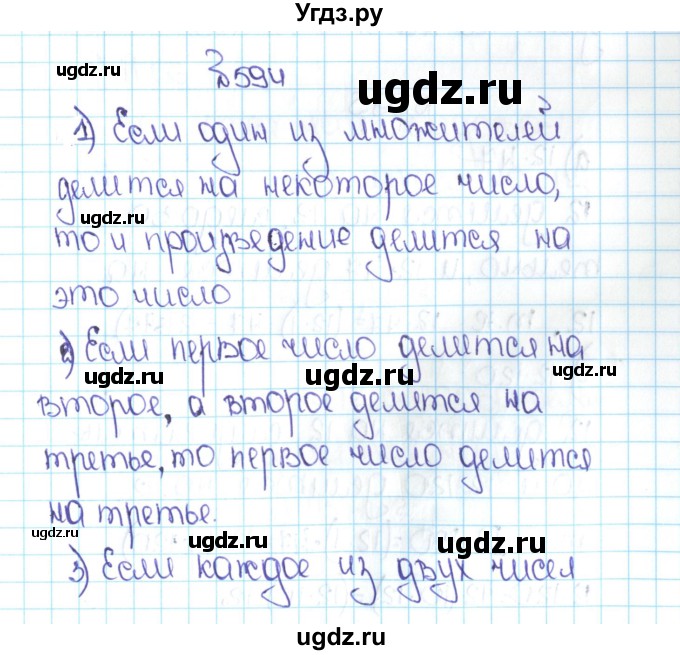 Угдз.ру
ugdz.ru
№594
ugdz.ru
1) Если один из множителей
делится на некоторое число,
ugdz.ru
то и произведение делится на
это число
2) Если первое число делится на
ugdz.ru ugdz.ru ugdz.ru
второе, а второе делится на
третье, то первое число делится
на третье.
ugdz.ru ugdz.ru ugdz.ru
3) Если каждое из двух чисел
ugdz.ru